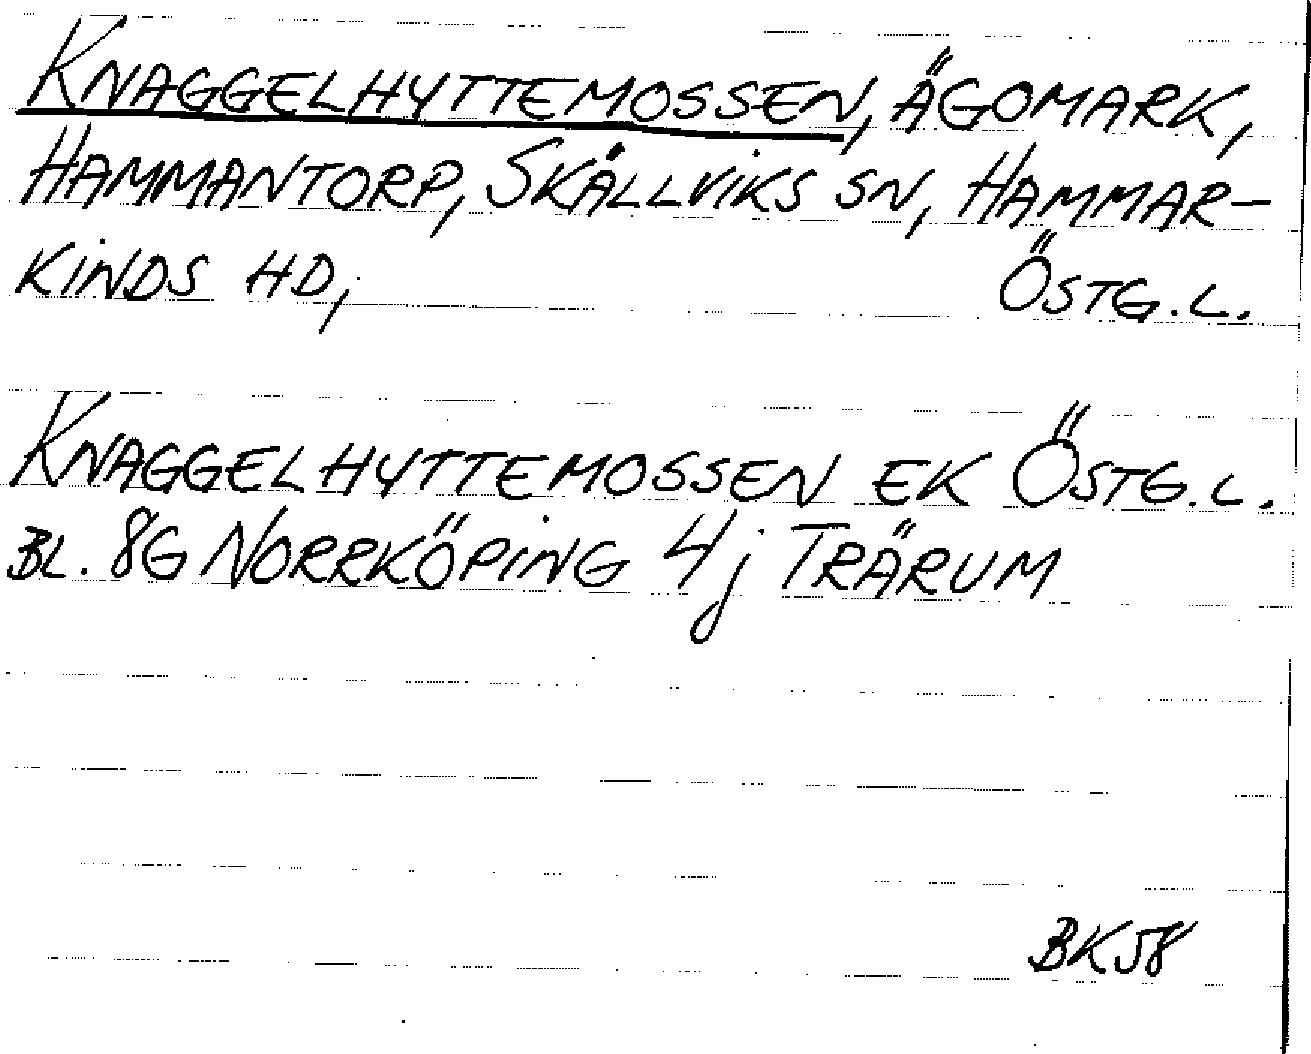 KNAGGELHYTTEMOSSEN, ÄGOMARK,
HAMMANTORP, SKÅLLVIKS SN, HAMMAR-
KINDS HD, ÖSTG. L.
KNAGGELHYTTEMOSSEN EK ÖSTG. L.
BL. 8G NORRKÖPING 4j TRÄRUM
BK58